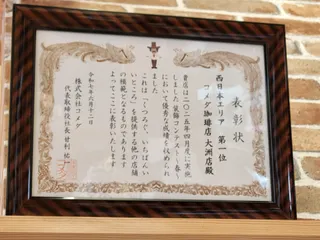 表彰状
西日本エリア 第一位
コメダ珈琲店 大洲店殿
貴店は二〇二五年四月度に実施
しました 装飾コンテスト~春~
において優秀な成績を収められ
ました
これは「くつろぐ、いちばん
いいところ」を提供する他の店舗
の模範となるものであります
よってここに表彰いたします
令和七年六月十二日
株式会社コメダ
代表取締役社長 甘利祐一